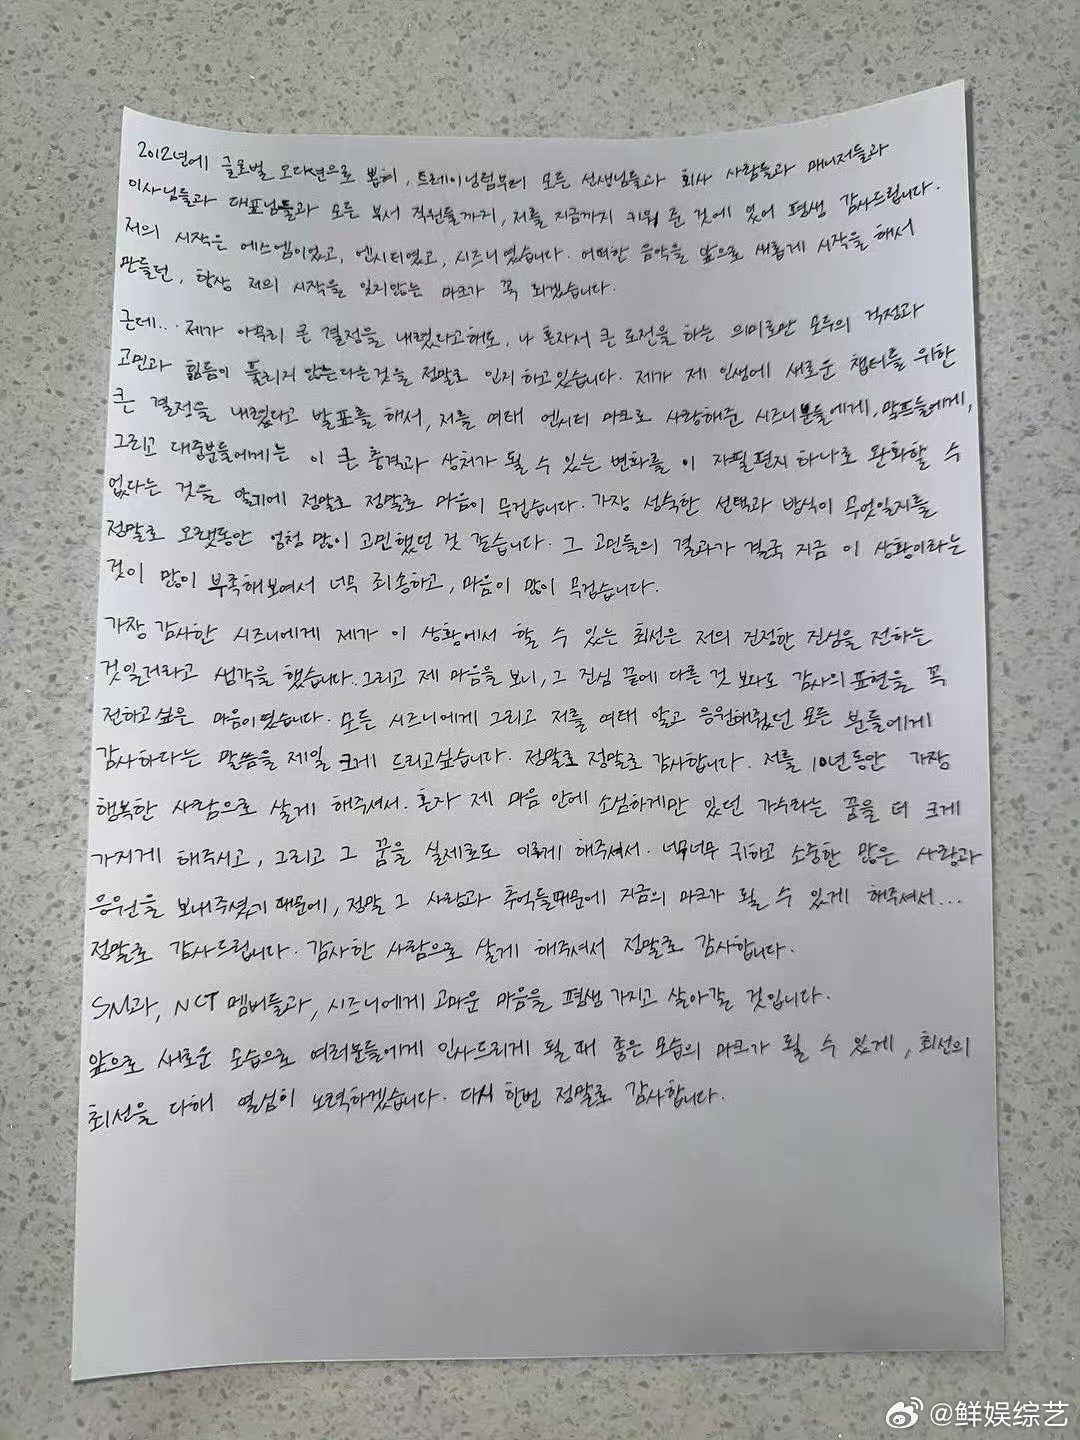 2012년에 글로벌 오디션으로 뽑혀, 트레이닝팀부터 모든 선생님들과 회사 사람들과 매니저들과
이사님들과 대표님들과 모든 부서 직원들까지, 저를 지금까지 키워 준 것에 있어 평생 감사드립니다.
저의 시작은 에스엠이었고, 엔시티였고, 시즈니였습니다. 어떠한 음악을 앞으로 새롭게 시작을 해서
만들던, 항상 저의 시작을 잊지않는 마크가 꼭 되겠습니다.
근데... 제가 아무리 큰 결정을 내렸다고해도, 나 혼자서 큰 도전을 하는 의미로만 모두의 걱정과
고민과 힘듦이 풀리지 않는다는것을 정말로 인지하고있습니다. 제가 제 인생에 새로운 챕터를 위한
큰 결정을 내렸다고 발표를 해서, 저를 여태 엔시티 마크로 사랑해준 시즈니분들에게, 맠프들에게,
그리고 대중분들에게는 이 큰 충격과 상처가 될 수 있는 변화를 이 자필편지 하나로 완화할 수
없다는 것을 알기에 정말로 정말로 마음이 무겁습니다. 가장 성숙한 선택과 방식이 무엇일지를
정말로 오랫동안 엄청 많이 고민했던 것 같습니다. 그 고민들의 결과가 결국 지금 이 상황이라는
것이 많이 부족해보여서 너무 죄송하고, 마음이 많이 무겁습니다.
가장 감사한 시즈니에게 제가 이 상황에서 할 수 있는 최선은 저의 진정한 진심을 전하는
것일거라고 생각을 했습니다. 그리고 제 마음을 보니, 그 진심 끝에 다른 것 보다도 감사의 표현을 꼭
전하고싶은 마음이였습니다. 모든 시즈니에게 그리고 저를 여태 알고 응원해줬던 모든 분들에게
감사하다는 말씀을 제일 크게 드리고싶습니다. 정말로 정말로 감사합니다. 저를 10년동안 가장
행복한 사람으로 살게 해주셔서. 혼자 제 마음 안에 소심하게만 있던 가수라는 꿈을 더 크게
가지게 해주시고, 그리고 그 꿈을 실제로도 이루게 해주셔서. 너무너무 귀하고 소중한 많은 사랑과
응원을 보내주셨기 때문에, 정말 그 사랑과 추억들때문에 지금의 마크가 될 수 있게 해주셔서...
정말로 감사드립니다. 감사한 사람으로 살게 해주셔서 정말로 감사합니다.
SM과, NCT 멤버들과, 시즈니에게 고마운 마음을 평생 가지고 살아갈 것입니다.
앞으로 새로운 모습으로 여러분들에게 인사드리게 될 때 좋은 모습의 마크가 될 수 있게, 최선의
최선을 다해 열심히 노력하겠습니다. 다시 한번 정말로 감사합니다.
@鲜娱综艺